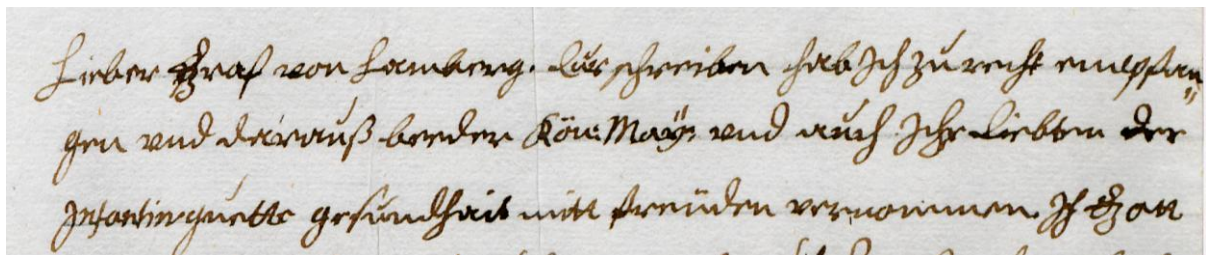 Lieber Graf von Lamberg. Eur schreiben hab Ich zu recht empfan„
gen vnd darauß beeder Kön: May: vnd auch Ihr Liebten der
Infantin guette gesundhait mitt freüden vernommen. Ich